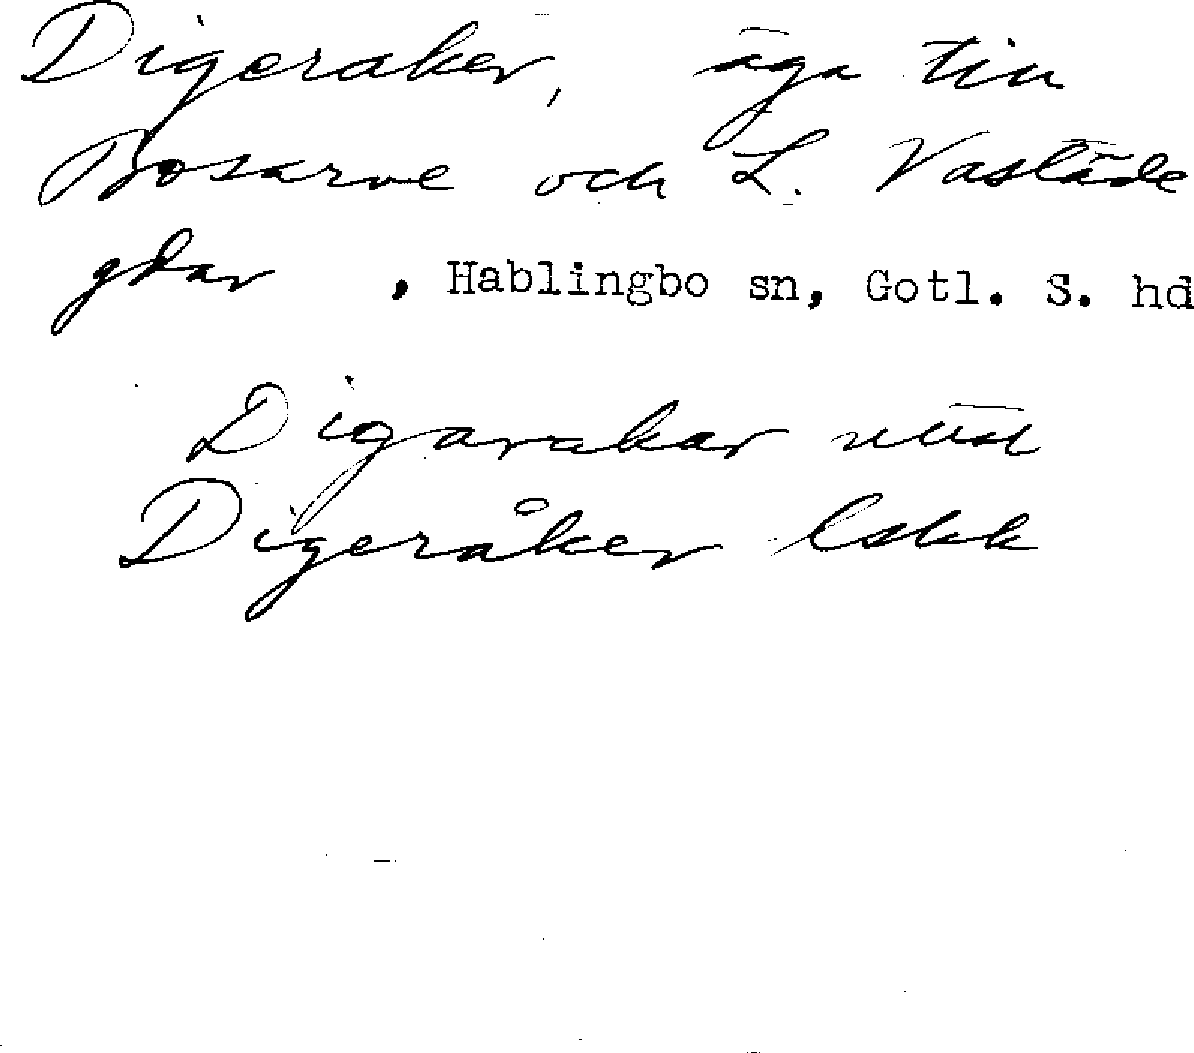 Digeraker, äga till
Bosarve och L. Vastäde
gdar , Hablingbo sn, Gotl. S. hd
Digarakar
Digeråker lskk